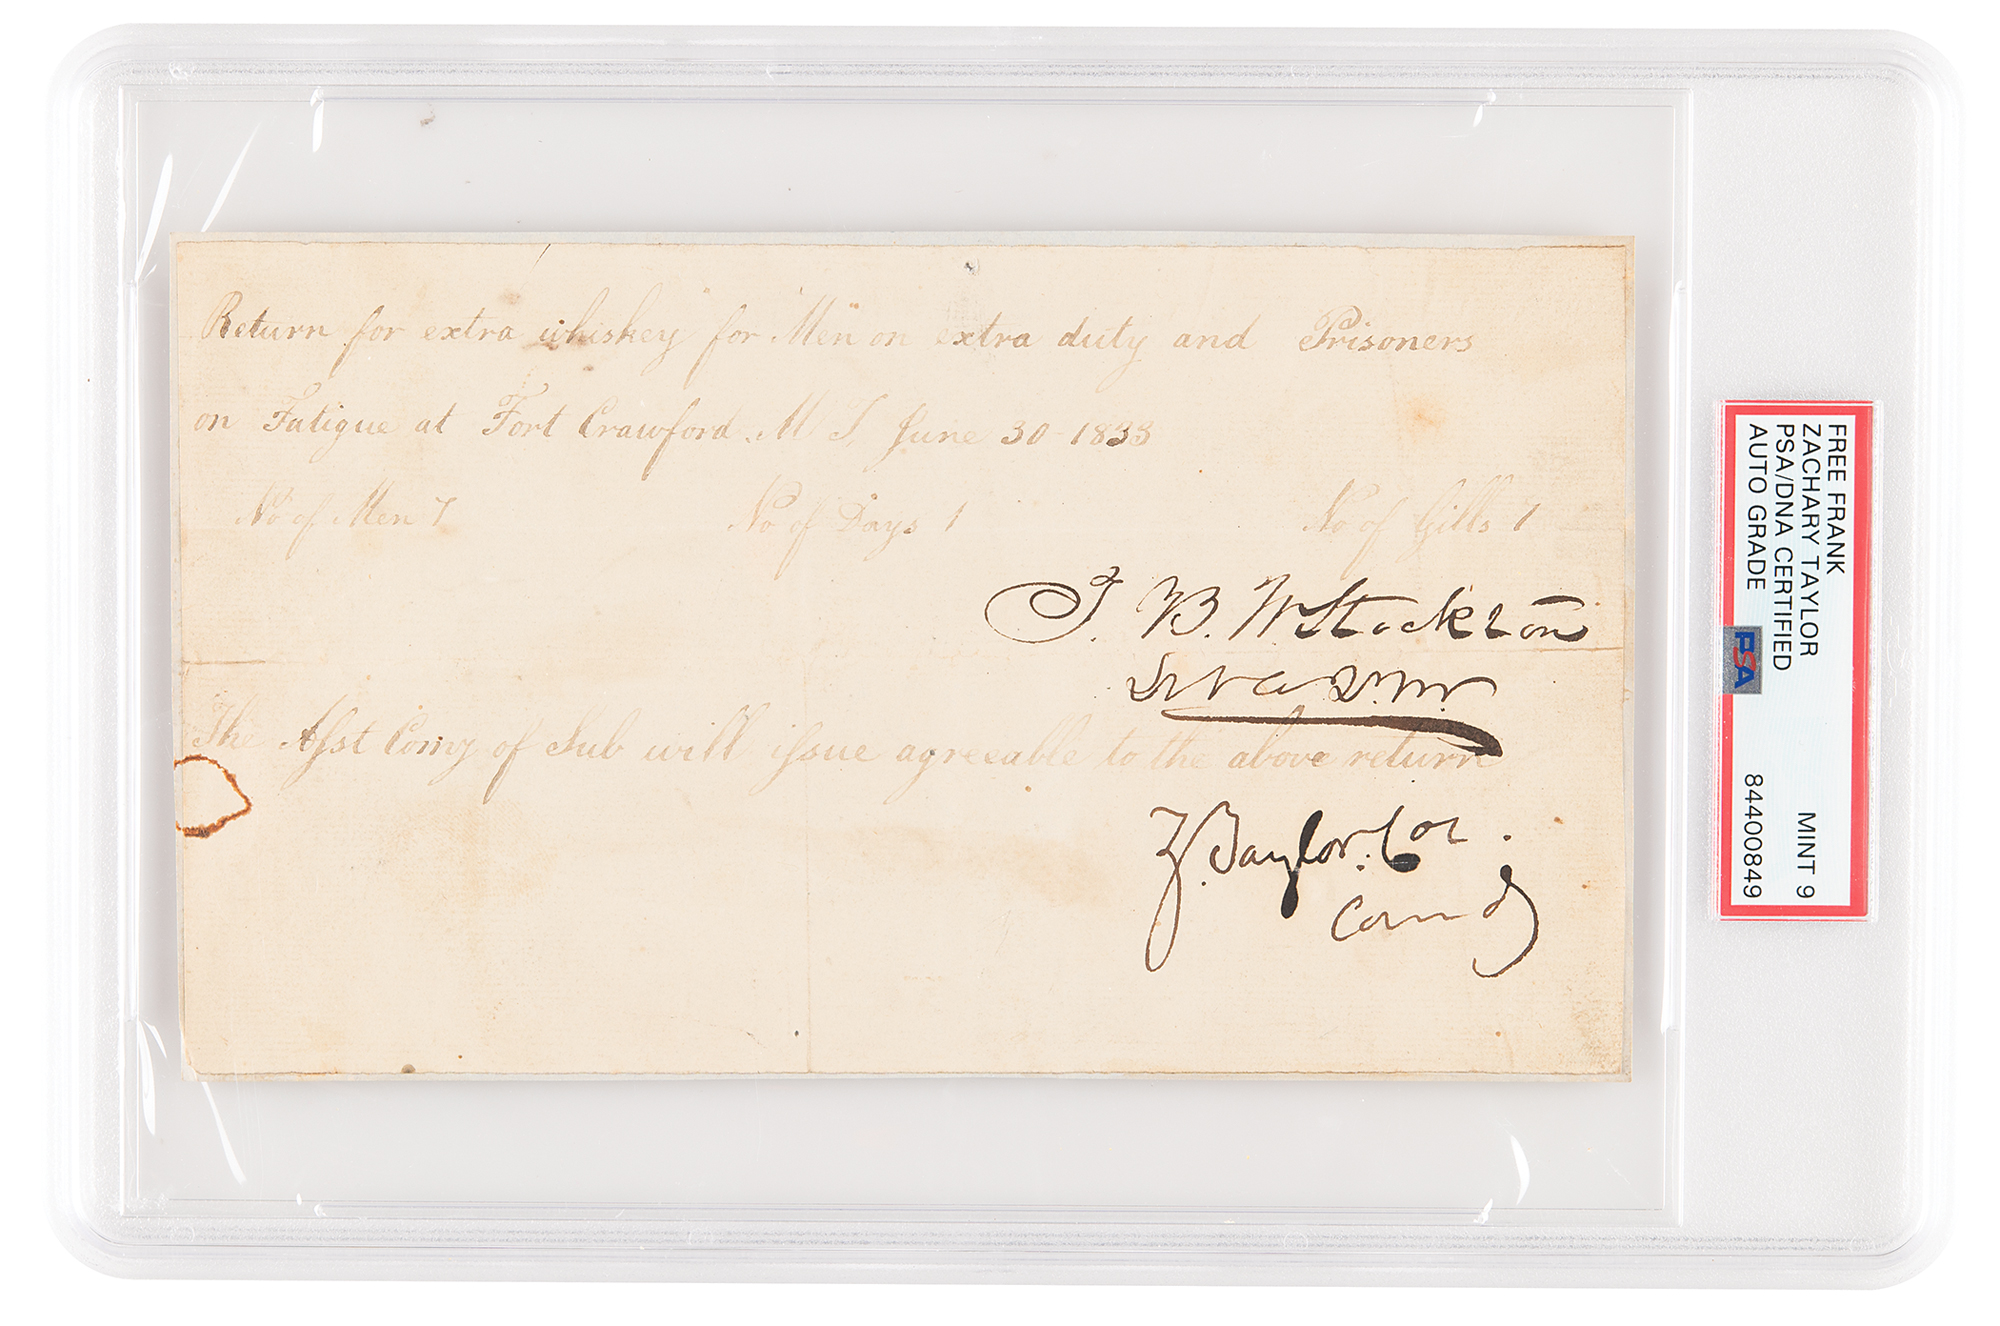 Return for extra whiskey for Men on extra duty and Prisoners
on Fatigue at Fort Crawford M T, June 30 - 1833
No of Men 7 No of Days 1 No of Gills 7
T. B. W. Stockton
Lt & A. Q. M.
The Asst Comy of Sub will issue agreeable to the above return
Z. Taylor. Col.
Comdg
FREE FRANK
ZACHARY TAYLOR
PSA/DNA CERTIFIED
AUTO GRADE
MINT 9
84400849
PSA